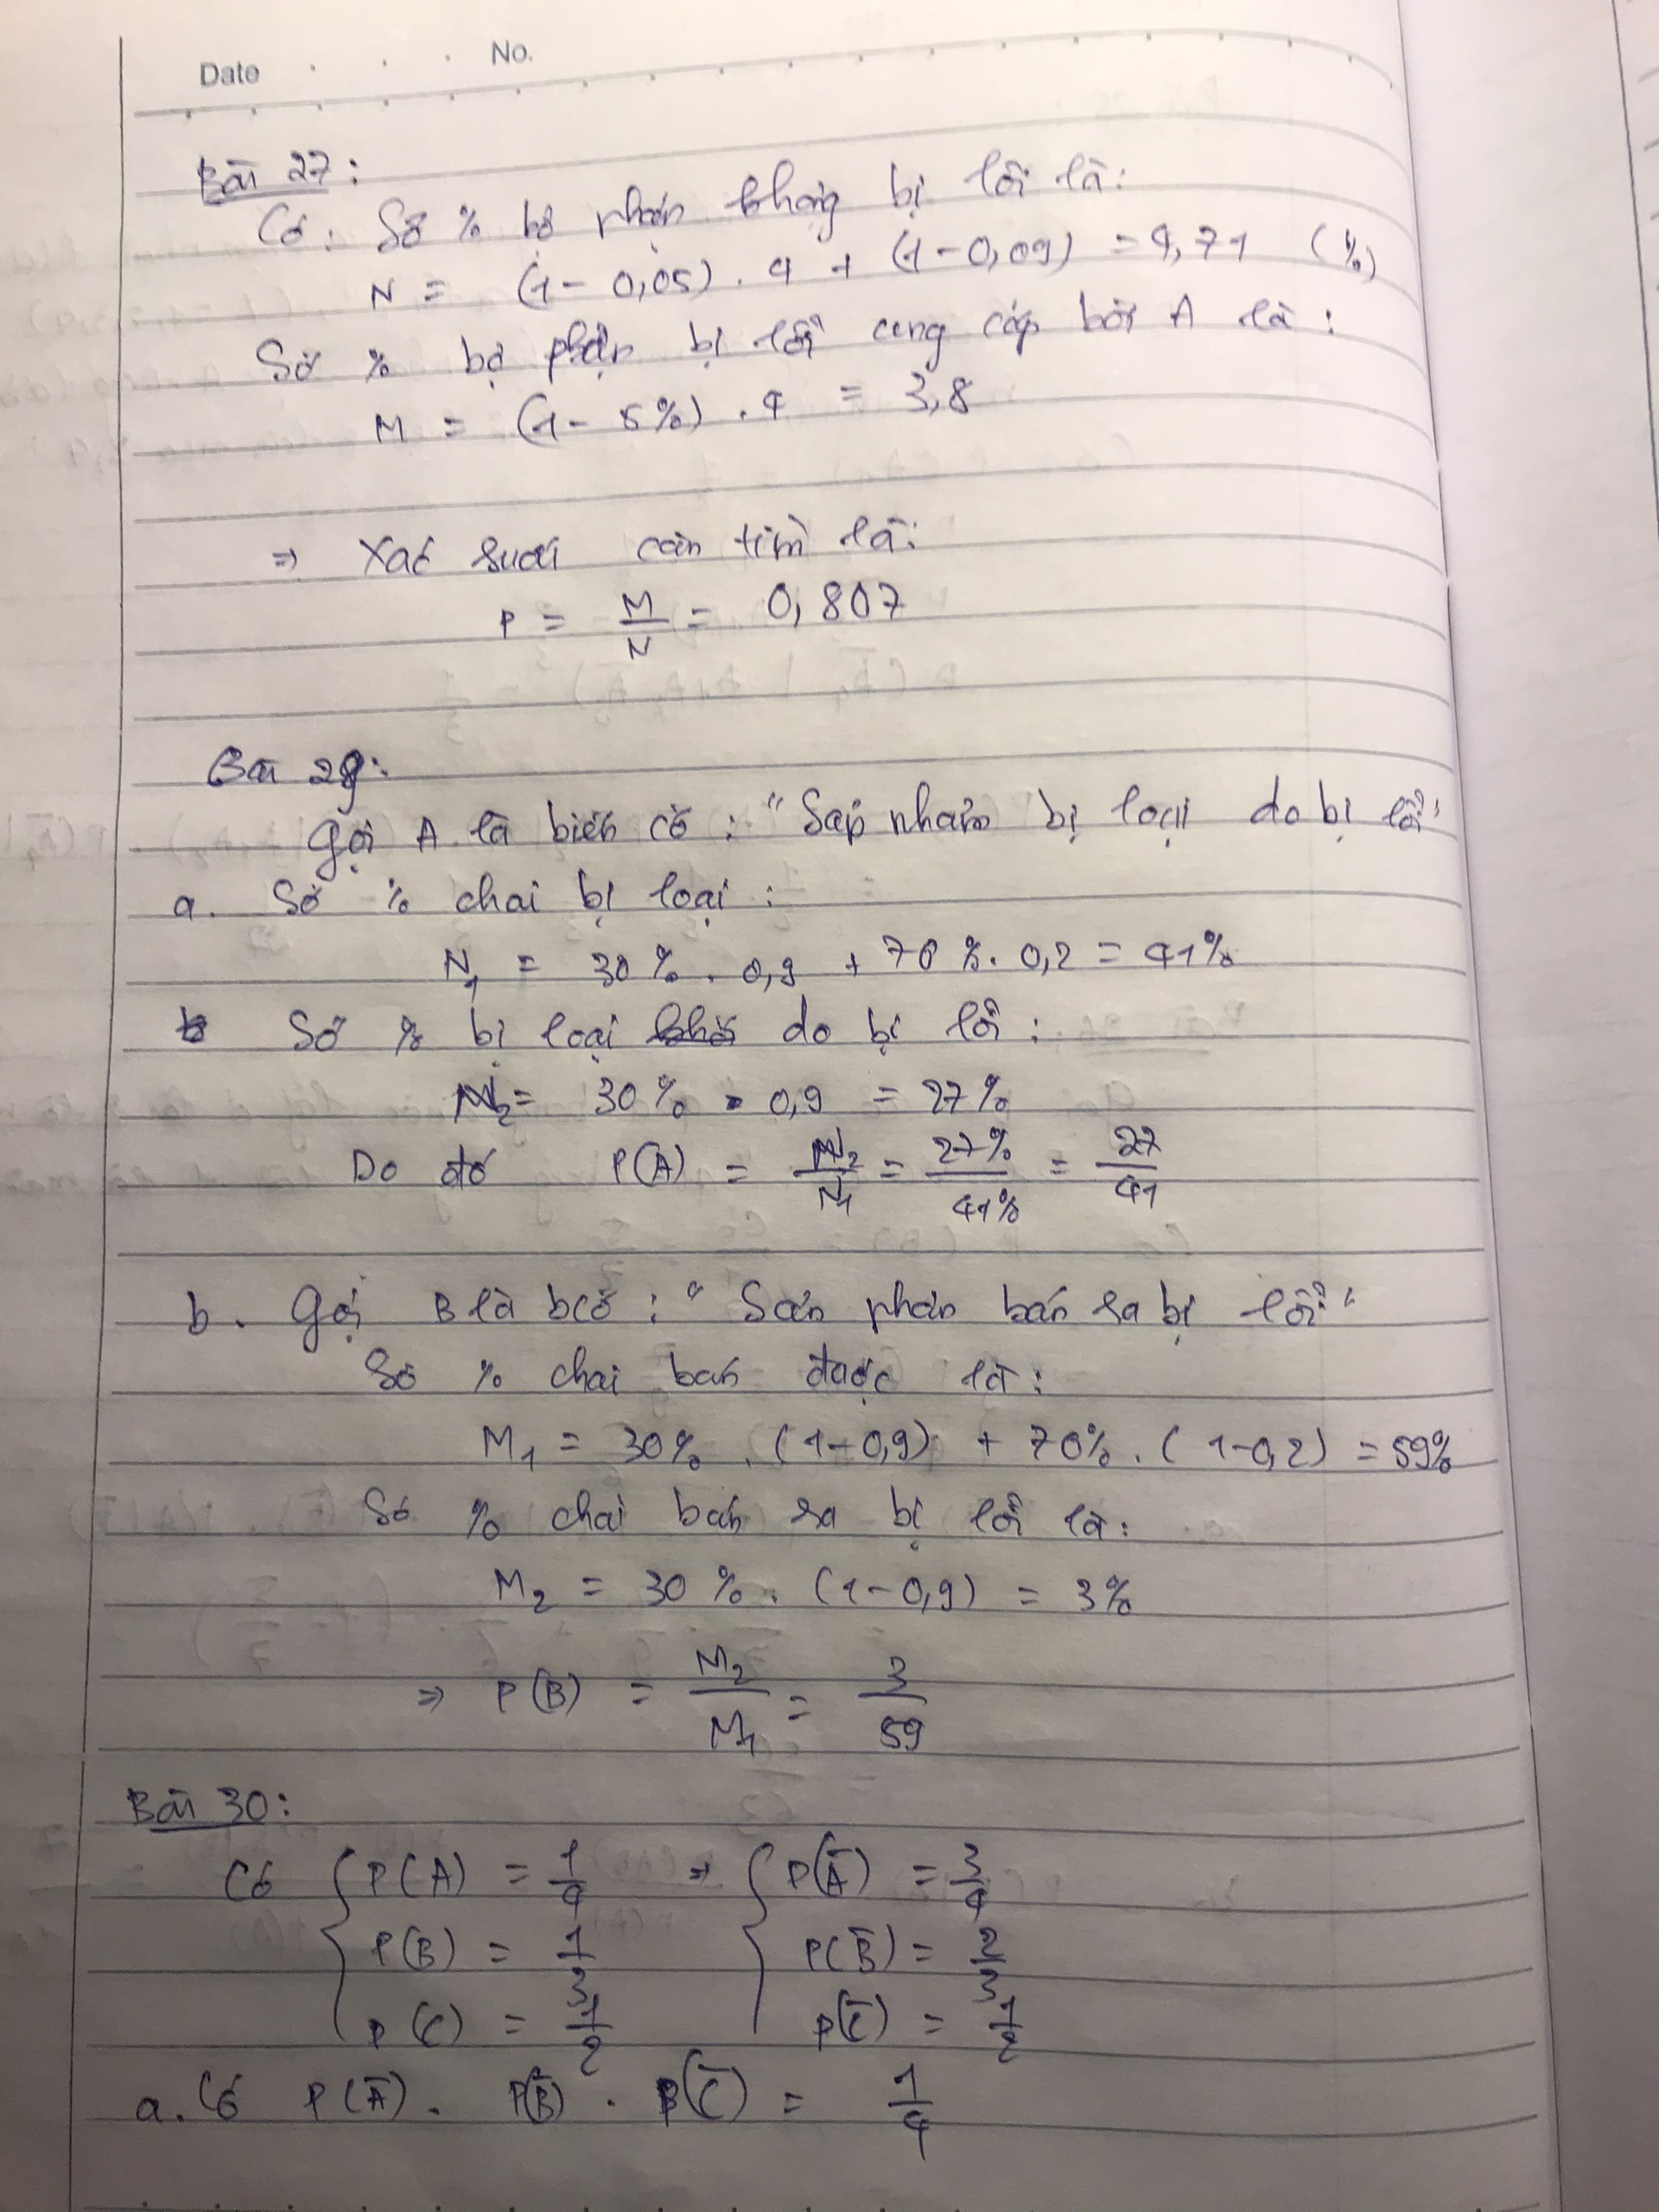 Date No.
Bài 27:
Có: Số % bộ phận không bị lỗi là:
N = (1 - 0,05) . 4 + (1 - 0,09) = 4,71 (%)
Số % bộ phận bị lỗi cung cấp bởi A là:
M = (1 - 5%) . 4 = 3,8
⇒ Xác suất cần tìm là:
P = M/N = 0,807
Bài 29:
Gọi A là biến cố: "Sản phẩm bị loại do bị lỗi"
a. Số % chai bị loại:
N₁ = 30% . 0,9 + 70%. 0,2 = 41%
Số % bị loại do bị lỗi:
N₂ = 30% . 0,9 = 27%
Do đó P(A) = N₂/N₁ = 27%/41% = 27/41
b. Gọi B là bcố: "Sản phẩm bán ra bị lỗi"
Số % chai bán được là:
M₁ = 30% . (1-0,9) + 70%. (1-0,2) = 59%
Số % chai bán ra bị lỗi là:
M₂ = 30%. (1-0,9) = 3%
⇒ P(B) = M₂/M₁ = 3/59
Bài 30:
Có { P(A) = 1/4 ⇒ { P(Ā) = 3/4
P(B) = 1/3 P(B̄) = 2/3
P(C) = 1/2 P(C̄) = 1/2
a. Có P(Ā) . P(B̄) . P(C̄) = 1/4